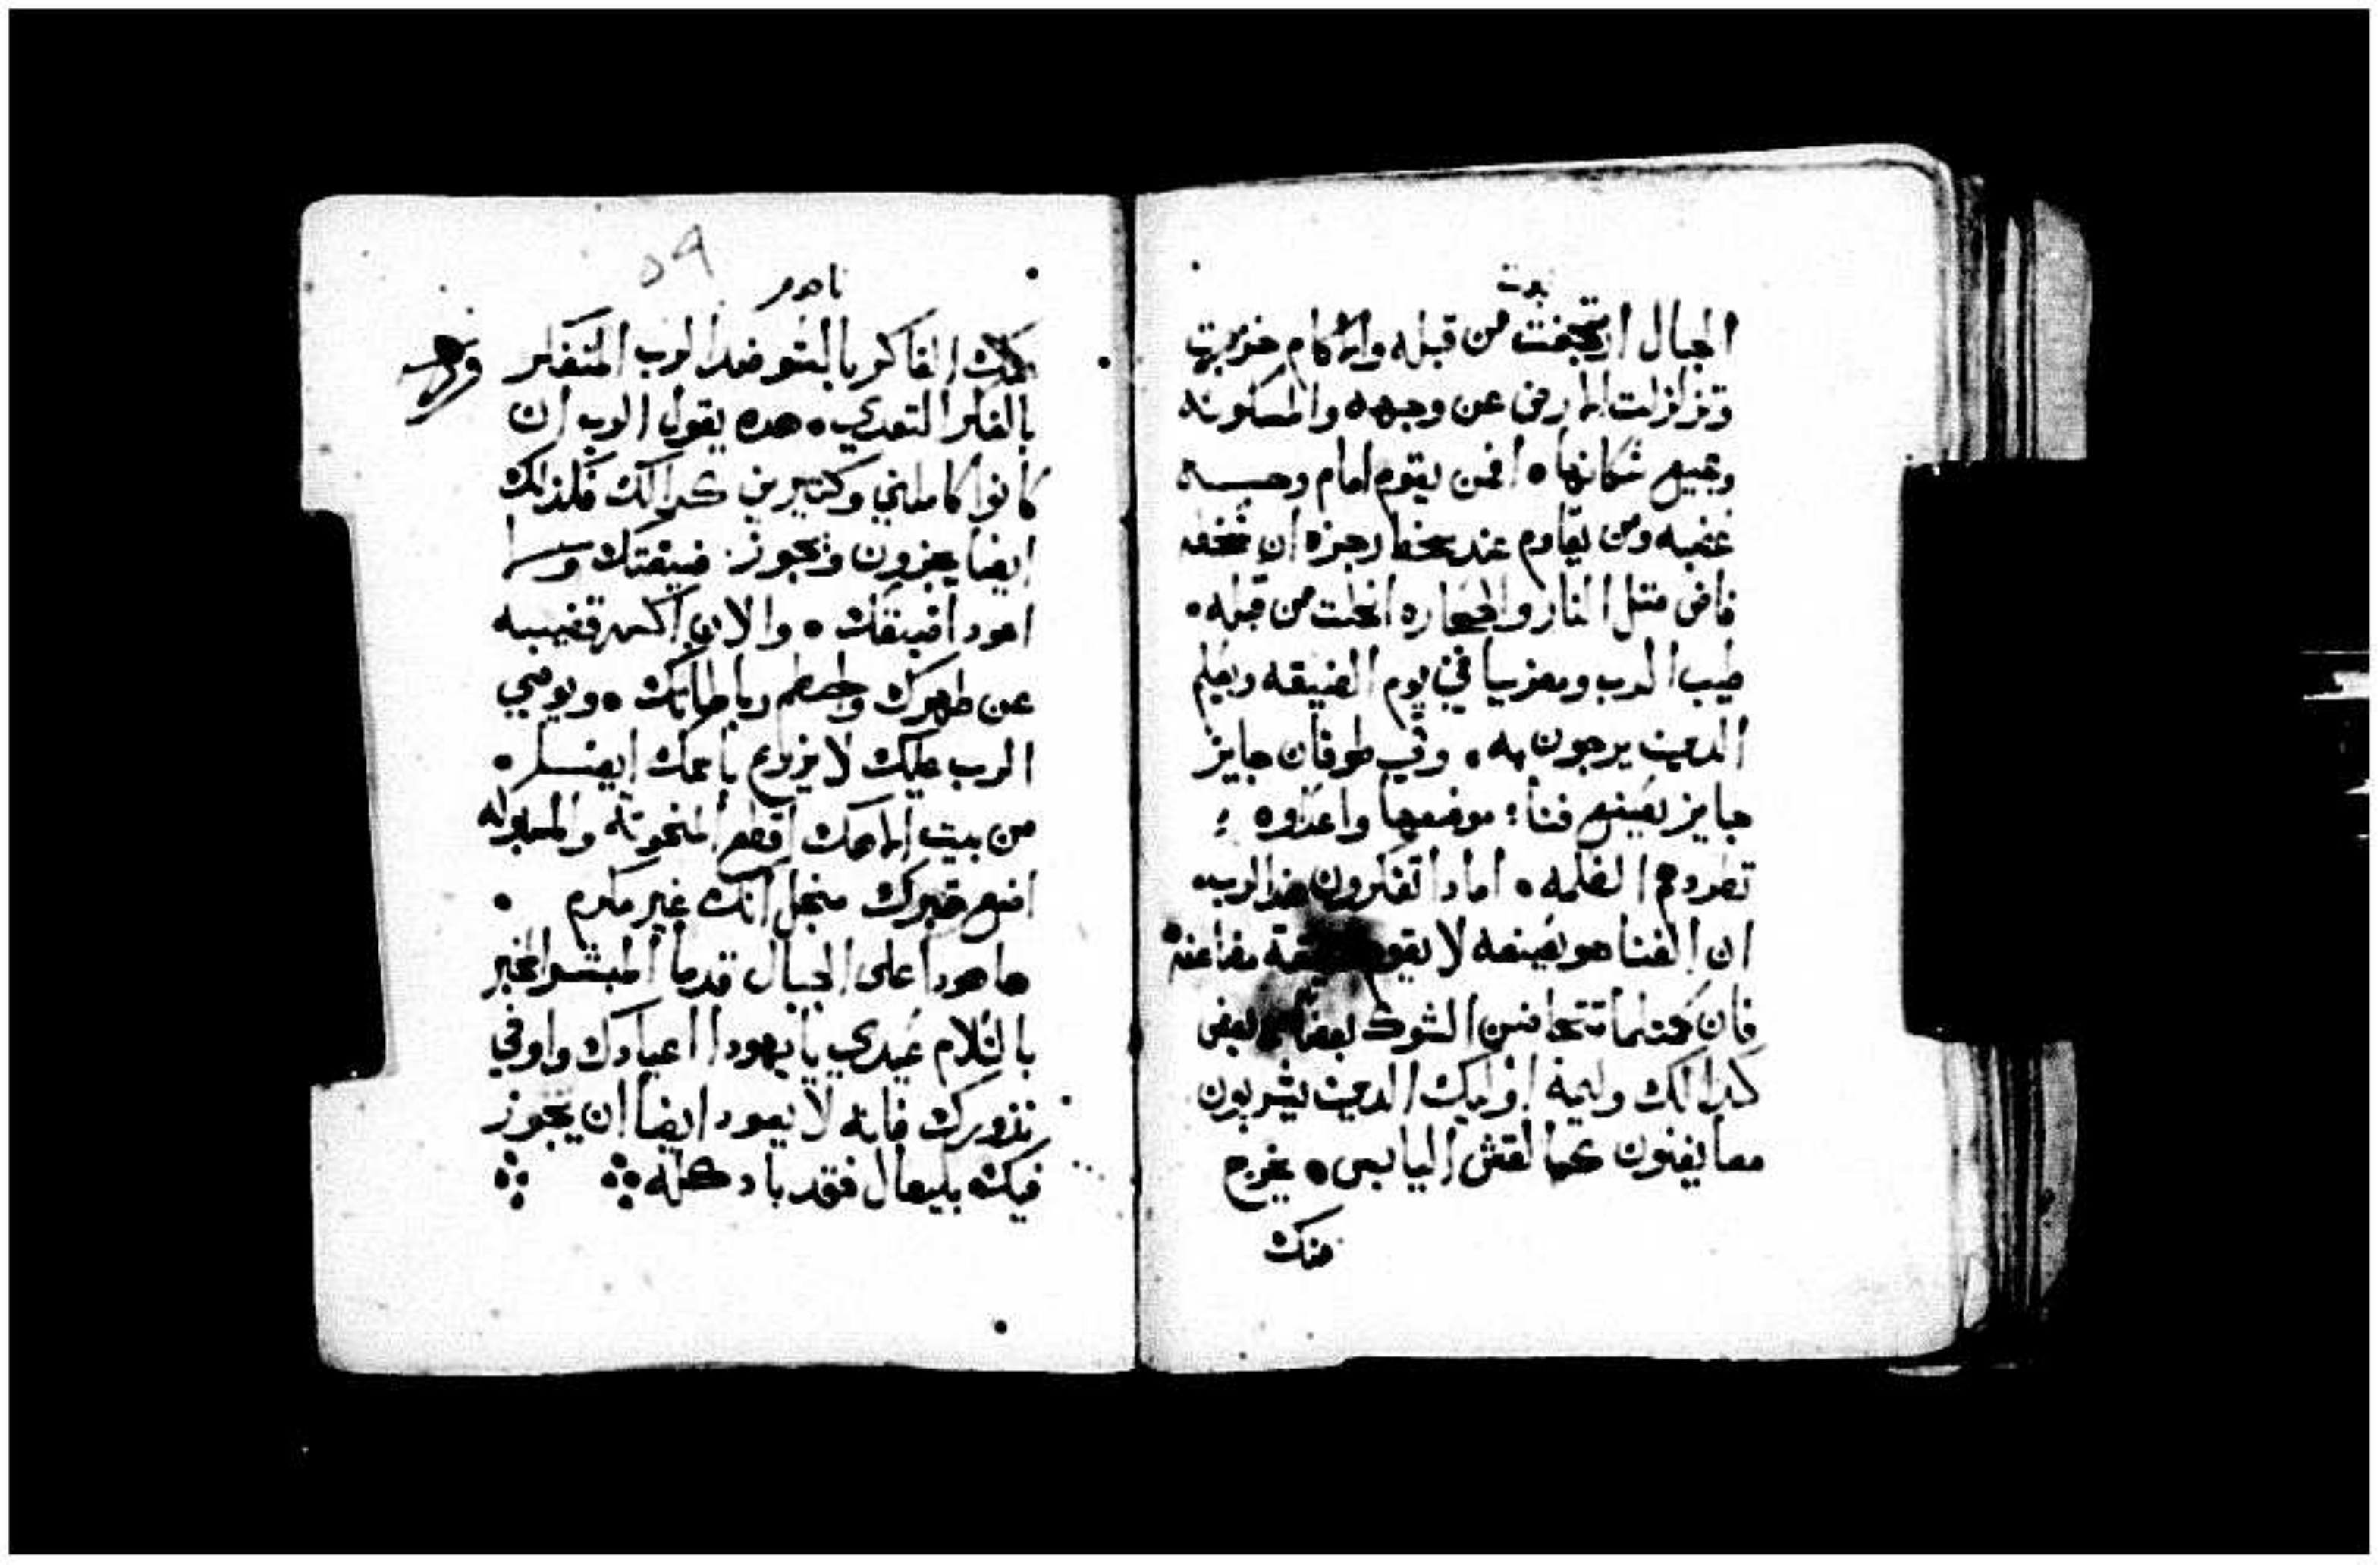 نبوة
الجبال ارتجفت من قبله والاكام خربت
وتزلزلت الارض عن وجهه والمسكونه
وجميع سكانها • افمن يقوم امام وجه
غضبه ومن يقاوم عند سخط رجزه ان سخطه
فاض مثل النار والحجاره انحلت من قبله •
طيب الرب ومعزيا في يوم الضيقه ويعلم
الدين يرجون به • وفي طوفان جايز
جايز يصنع فنا موضعها واعداوه
تطردهم الظلمه • اماذا تفكرون ضد الرب
ان الفنا هو يصنعه لا يقوم مضاعفه
فان تتحاضن الشوك بعضا بعض
كدالك وليمة اوليك الدين يشربون
معا يفنون كما القش اليابس • يخرج
منك
٥٩
ناحوم
منك الفاكر بالسو ضد الرب المتفكر
بالفكر التعدي • هده يقول الرب ان
كانوا كاملين وكثيرين كدالك فلذلك
ايضا يجزون وتجوز ضيقتك وسا
اعود اضيقك • والان اكسر قضيبه
عن ظهرك واحطم رباطاتك • ويوصي
الرب عليك لا يزرع باسمك ايضا •
من بيت الاهك اقطع المنحوته والمسبوكه
اضع قبرك منجل انك غير مكرم •
ها هودا على الجبال قدما المبشر المخبر
بالسلام عيدي يا يهودا اعيادك واوفي
نذورك فانه لا يعود ايضا ان يجوز
فيك بليعال فقد باد كله